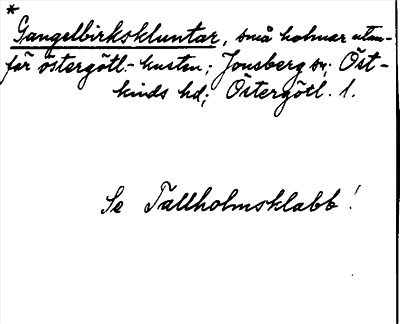 *
Gangelbirkskluntar, små holmar utan-
för östergötl.-kusten; Jonsberg sn; Öst-
kinds hd; Östergötl. l.
Se Tallholmsklabb!